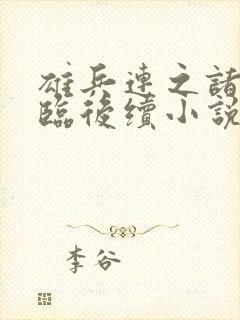 雄兵連之諸
臨後續小說
李谷